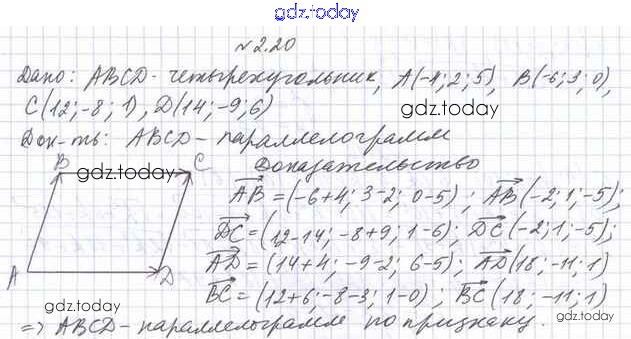 gdz.today
№2.20
Дано: ABCD - четырехугольник, A(-4; 2; 5), B(-6; 3; 0),
C(12; -8; 1), D(14; -9; 6)
gdz.today
Док-ть: ABCD - параллелограмм
B gdz.today C Доказательство
AB = (-6+4; 3-2; 0-5); AB(-2; 1; -5);
DC = (12-14; -8+9; 1-6); DC(-2; 1; -5);
A D AD = (14+4; -9-2; 6-5); AD(18; -11; 1)
BC = (12+6; -8-3; 1-0); BC(18; -11; 1)
gdz.today
=> ABCD - параллелограмм по признаку.
gdz.today